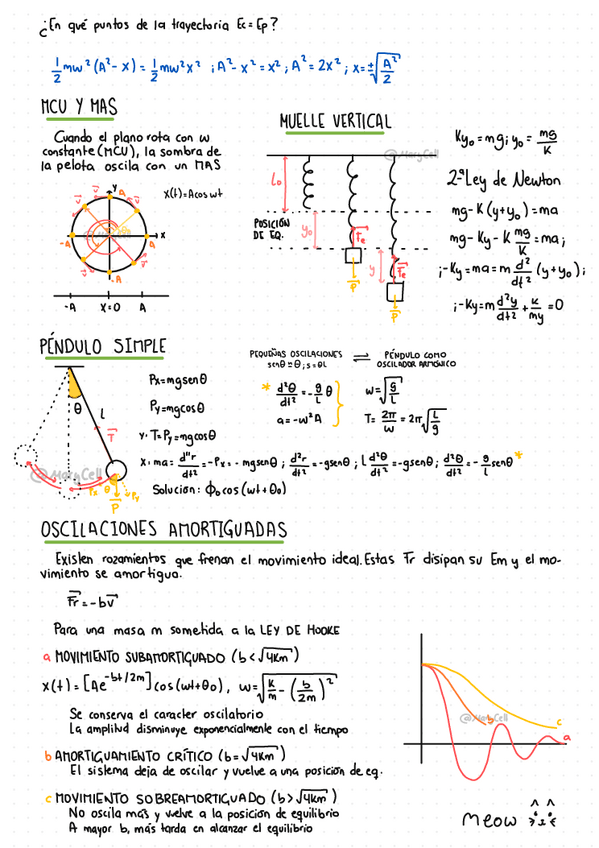 ¿En qué puntos de la trayectoria Ec = Ep?
1/2 mw² (A² - x) = 1/2 mw² x² ; A² - x² = x² ; A² = 2x² ; x = ±√(A²/2)
MCU Y MAS
Cuando el plano rota con w
constante (MCU), la sombra de
la pelota oscila con un MAS
x(t) = A cos wt
y
A
x
-A
A
-A
-A X=0 A
MUELLE VERTICAL
@MaryCell
l₀
POSICIÓN
DE EQ.
y₀
Fe
y
Fe
P
P
Ky₀ = mg ; y₀ = mg/K
2ª Ley de Newton
mg - K (y + y₀) = ma
mg - Ky - K mg/K = ma ;
; -Ky = ma = m d²/dt² (y + y₀) ;
; -Ky = m d²y/dt² + K/my = 0
PÉNDULO SIMPLE
θ
l
T
Px
θ
Py
P
@MaryCell
Px = mg sen θ
Py = mg cos θ
y: T = Py = mg cos θ
x: ma = d"r/dt² = -Px = - mg sen θ ; d²r/dt² = -g sen θ ; l d²θ/dt² = -g sen θ ; d²θ/dt² = - g/l sen θ *
Solución: ϕ₀ cos (wt + θ₀)
PEQUEÑAS OSCILACIONES ⇌ PÉNDULO COMO
sen θ ≈ θ ; s = θl OSCILADOR ARMÓNICO
* d²θ/dt² = - g/l θ
a = -w² A
w = √(g/l)
T = 2π/w = 2π √(L/g)
OSCILACIONES AMORTIGUADAS
Existen rozamientos que frenan el movimiento ideal. Estas Fr disipan su Em y el mo-
vimiento se amortigua.
Fr = -bv
Para una masa m sometida a la LEY DE HOOKE
a MOVIMIENTO SUBAMORTIGUADO (b < √4Km)
x(t) = [Ae^(-bt/2m)] cos (wt + θ₀) , w = √(K/m - (b/2m)²)
Se conserva el caracter oscilatorio
La amplitud disminuye exponencialmente con el tiempo
b AMORTIGUAMIENTO CRÍTICO (b = √4Km)
El sistema deja de oscilar y vuelve a una posición de eq.
c MOVIMIENTO SOBREAMORTIGUADO (b > √4Km)
No oscila más y vuelve a la posición de equilibrio
A mayor b, más tarda en alcanzar el equilibrio
@MaryCell
b
c
a
meow